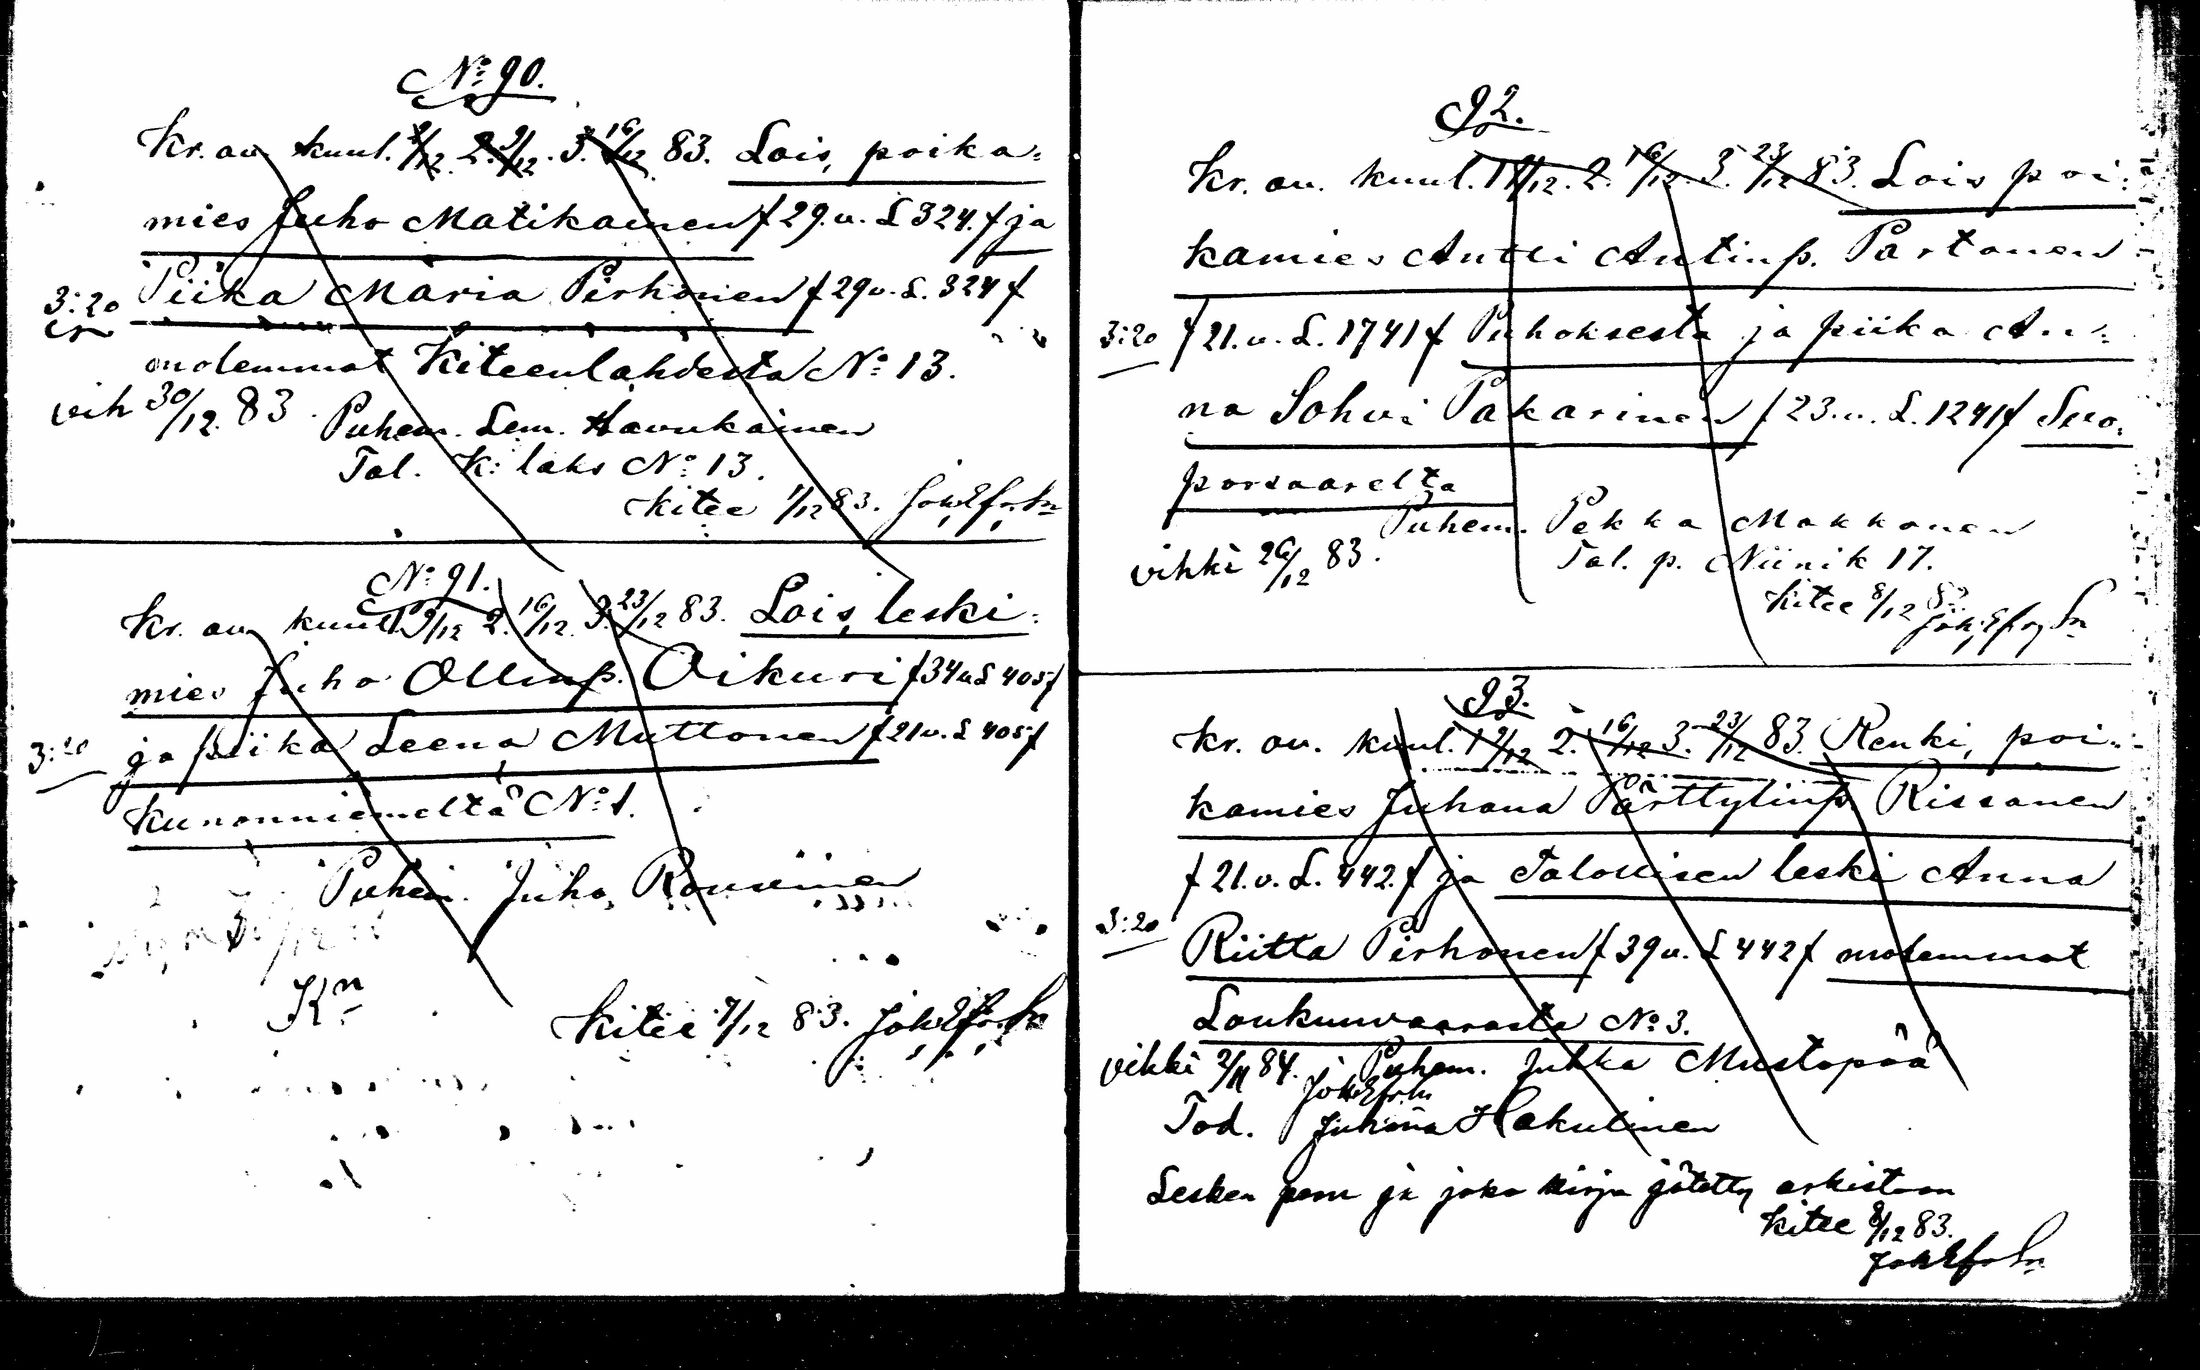 No 90.
Kr. av. kuul. 2/12. 2. 9/12. 3. 16/12 83. Lois, poika=
mies Juho Matikainen f 29. v. L 324. f ja
Piika Maria Pirhonen f 29 v. L. 324 f
3:20
molemmat Kiteenlahdesta No 13.
vih 30/12. 83.
Puhem. Lem. Havukainen
Tal. K: laks No 13.
Kitee 1/12 83.
No 91.
Kr. av. kuul. 1 9/12 2. 16/12. 3. 23/12 83. Lois, leski=
mies Juho Ollinp. Oikuri f 34 v. L 405 f
3:20 ja piika Leena Muttonen f 21 v. L 405 f
Kunonniemeltä No 1.
Puhem. Juho
Kn
Kitee 7/12 83.
92.
Kr. av. kuul. 1 9/12. 2. 16/12. 3. 23/12 83. Lois poi=
kamies Antti Antinp. Partanen
3:20 f 21. v. L. 1741 f Puhoksesta ja piika An=
na Sohvi Pakarinen f 23. v. L. 1241 f Suo=
porsaarelta
Puhem. Pekka Makkonen
vihki 26/12 83.
Tal. p. Niinik 17.
Kitee 8/12 83
93.
Kr. av. kuul. 1 9/12 2. 16/12 3. 23/12 83. Renki, poi=
kamies Juhana Pärttylinp. Rissanen
f 21. v. L. 442. f ja Talollisen leski Anna
3:20
Riitta Pirhonen f 39 v. L 442 f molemmat
Loukunvaarasta No 3.
vihki 84. Puhem. Jukka Mustapää
Tod. Juhana Hakulinen
Lesken ja jako kirja jätetty arkistoon
Kitee 8/12 83.